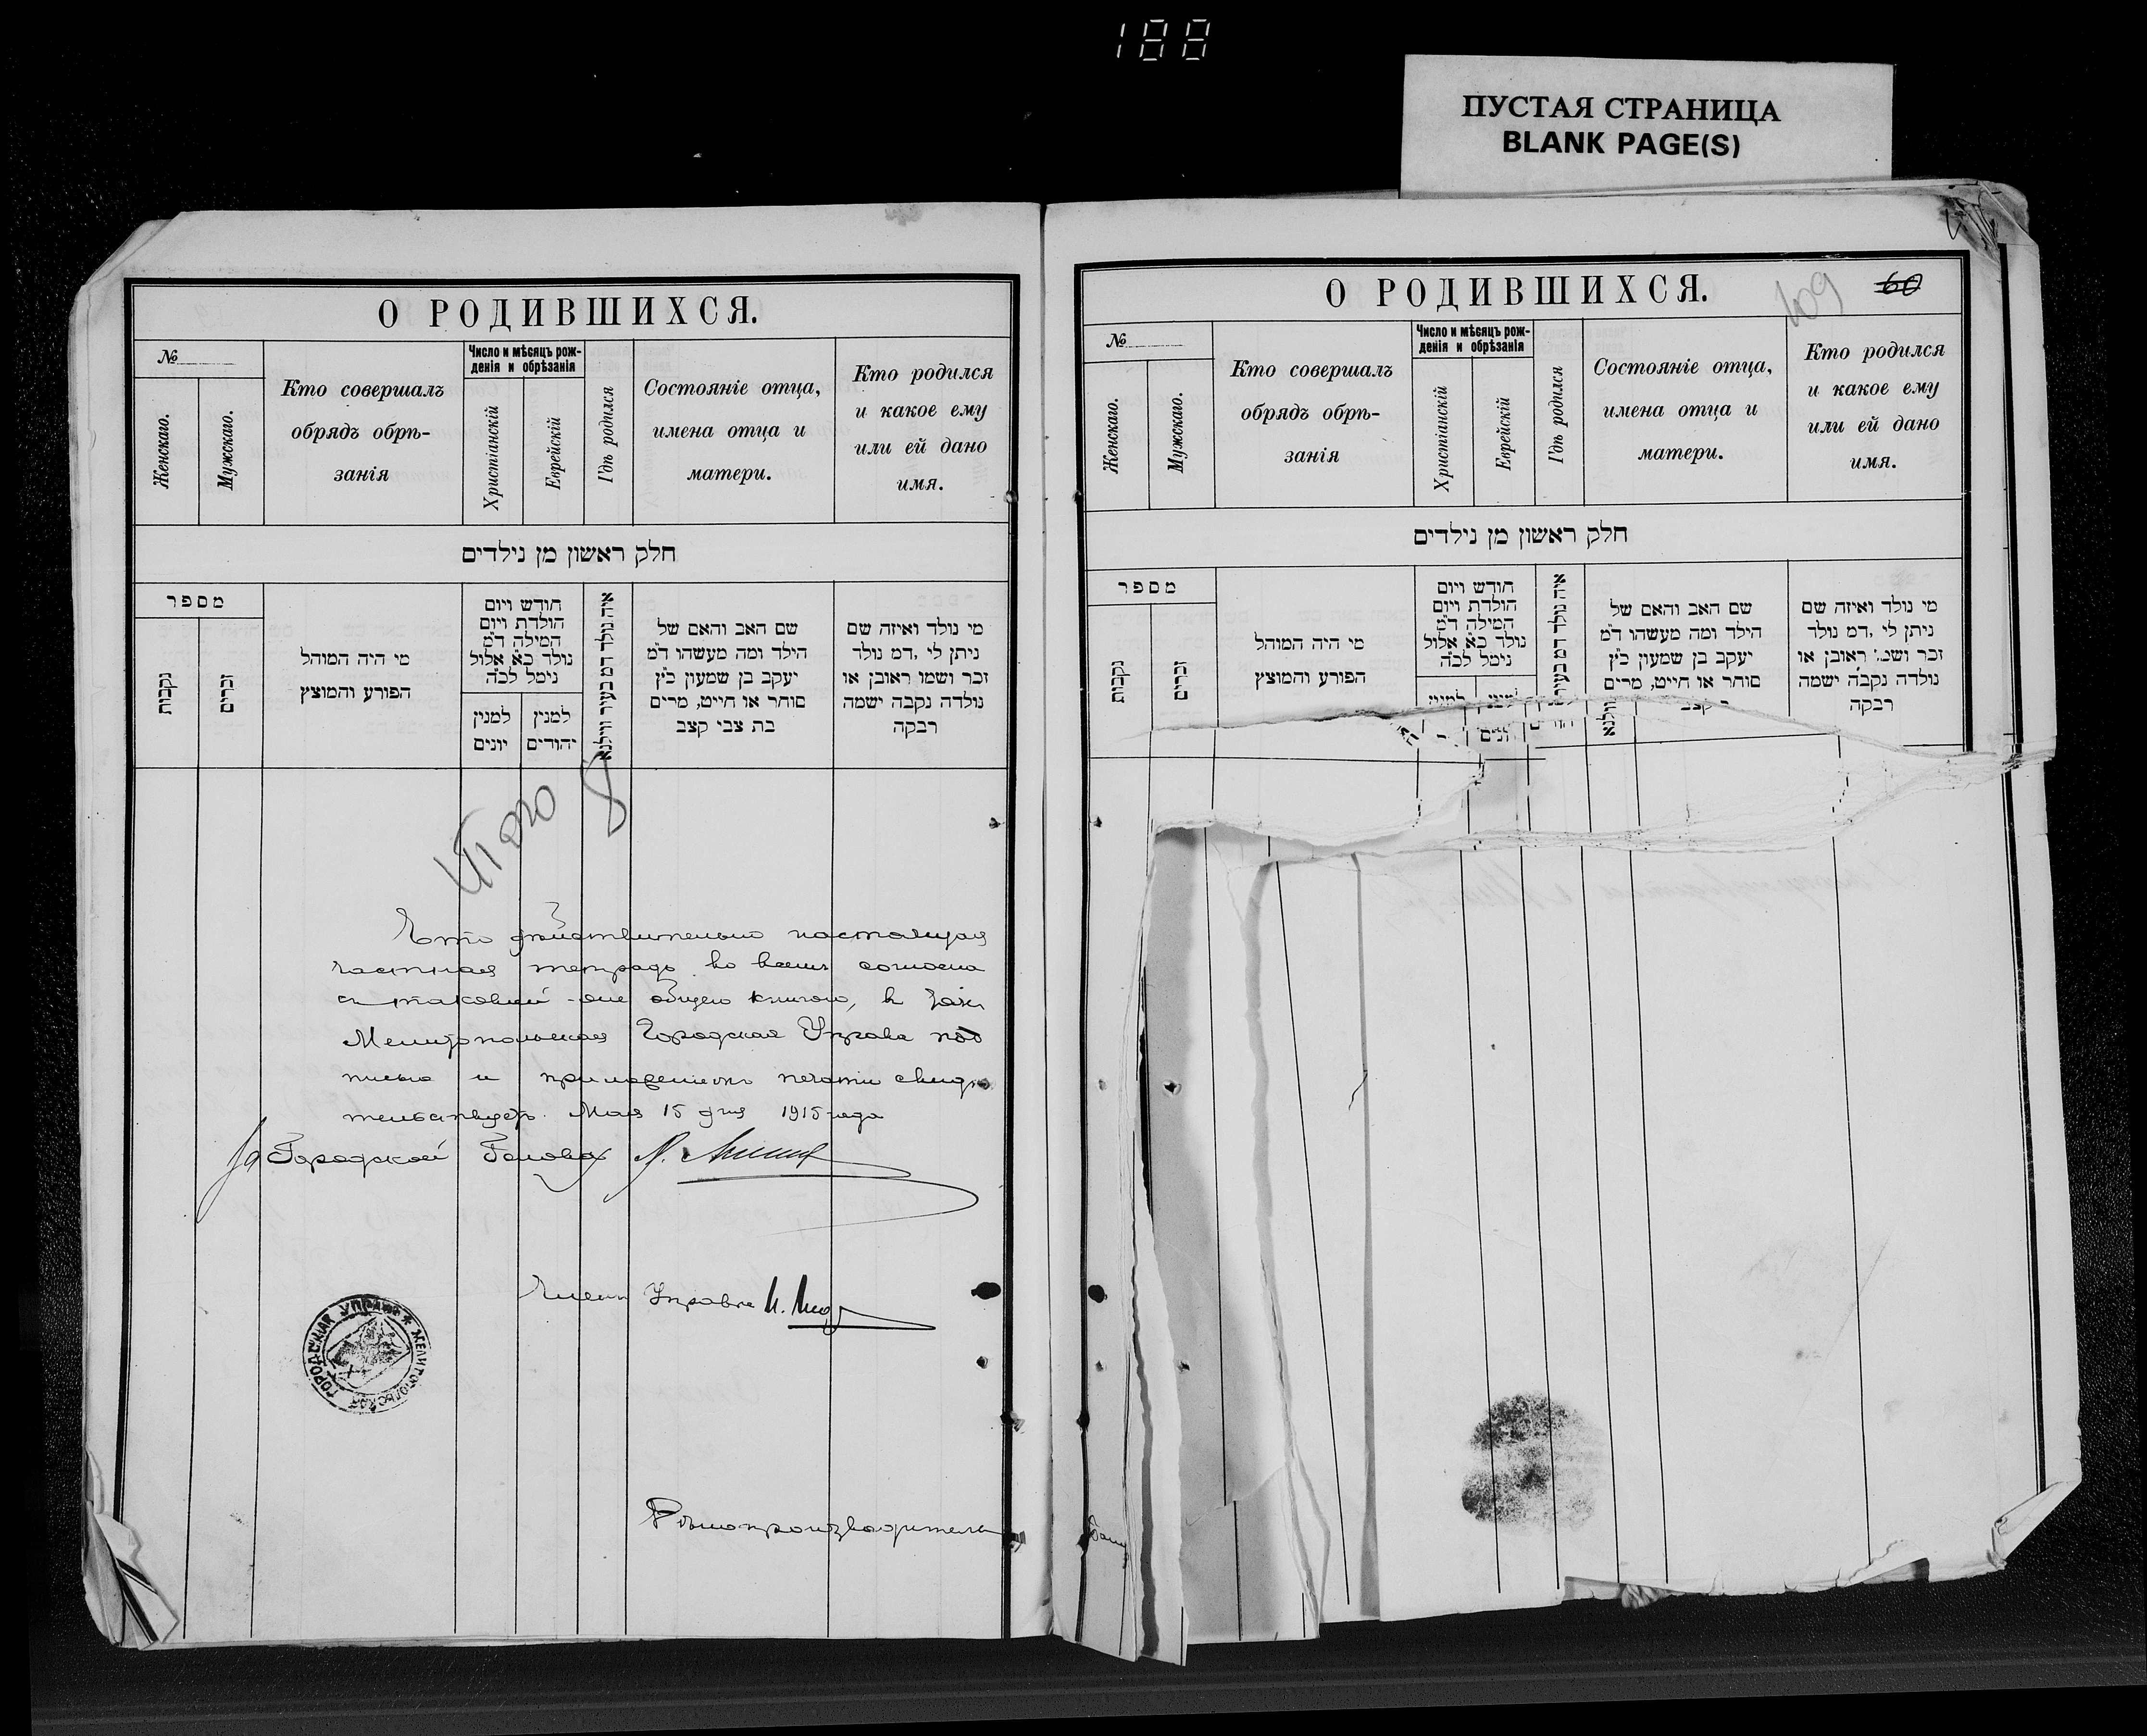 188
ПУСТАЯ СТРАНИЦА
BLANK PAGE(S)
О РОДИВШИХСЯ.
№
Женскаго.
Мужескаго.
Кто совершалъ
обрядъ обрѣ-
занія
Число и мѣсяцъ рож-
денія и обрѣзанія
Христіанскій
Еврейскій
Гдѣ родился
Состояніе отца,
имена отца и
матери.
Кто родился
и какое ему
или ей дано
имя.
חלק ראשון מן נילדים
מספר
נקבות
זכרים
מי היה המוהל
הפורע והמוצץ
חודש ויום
הולדת ויום
המילה ד״מ
נולד כ״א אלול
נימל לכ״ה
למנין
יונים
למנין
יהודים
איה נולד דמ בעיר ווילנא
שם האב והאם של
הילד ומה מעשהו ד״מ
יעקב בן שמעון כ״ץ
סוחר או חייט, מרים
בת צבי קצב
מי נולד ואיזה שם
ניתן לי ,דמ נולד
זכר ושמו ראובן או
נולדה נקבה ישמה
רבקה
Итого 8
Что дѣйствительно настоящая
частная тетрадь во всемъ согласна
съ таковой-же общею книгою, в
Мелитопольская Городская Управа под
писью и приложеніемъ печати свидѣ
тельствуетъ. Мая 15 дня 1915 года
За Городской Голова
Членъ Управы
ГОРОДСКАЯ УПРАВА * МЕЛИТОПОЛЬСКАЯ
Дѣлопроизводитель
О РОДИВШИХСЯ.
109
60
№
Женскаго.
Мужескаго.
Кто совершалъ
обрядъ обрѣ-
занія
Число и мѣсяцъ рож-
денія и обрѣзанія
Христіанскій
Еврейскій
Гдѣ родился
Состояніе отца,
имена отца и
матери.
Кто родился
и какое ему
или ей дано
имя.
חלק ראשון מן נילדים
מספר
נקבות
זכרים
מי היה המוהל
הפורע והמוצץ
חודש ויום
הולדת ויום
המילה ד״מ
נולד כ״א אלול
נימל לכ״ה
איה נולד דמ בעיר
ווילנא
שם האב והאם של
הילד ומה מעשהו ד״מ
יעקב בן שמעון כ״ץ
סוחר או חייט, מרים
קצב
מי נולד ואיזה שם
ניתן לי ,דמ נולד
זכר ושמו ראובן או
נולדה נקבה ישמה
רבקה